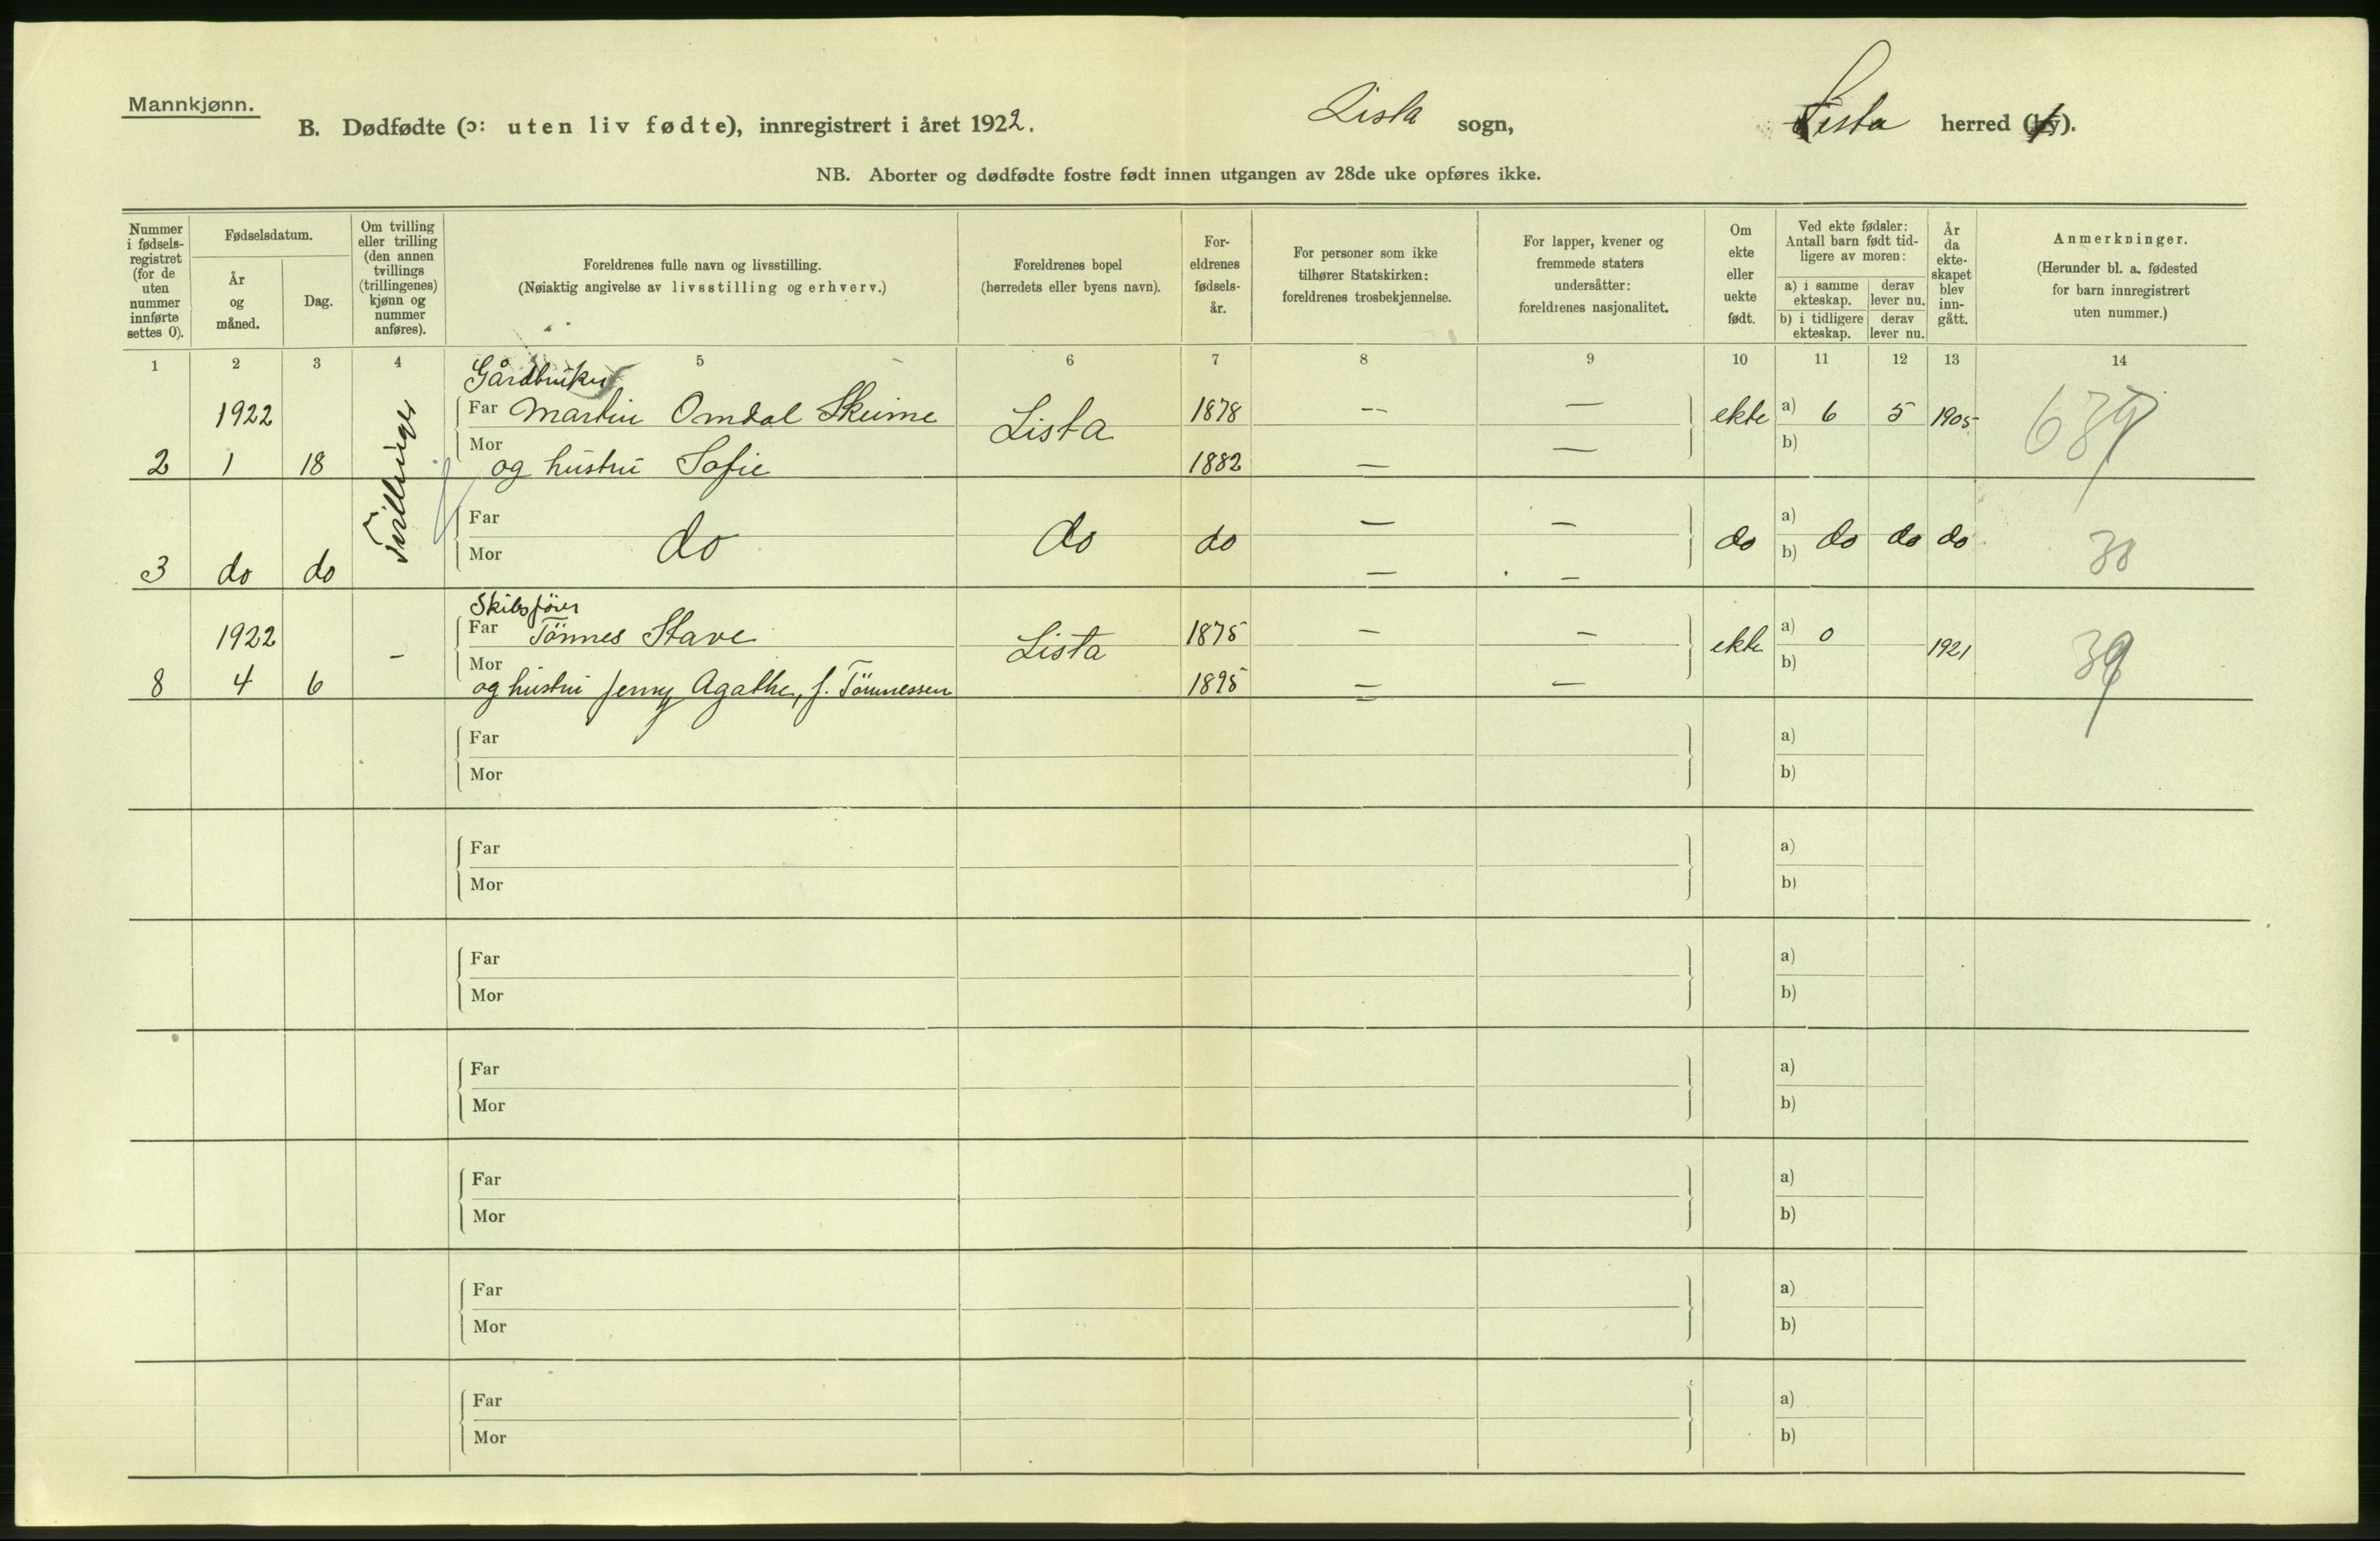 Mannkjønn.
B. Dødfødte (ɔ: uten liv fødte), innregistrert i året 1922. Lista sogn, Lista herred (by).
NB. Aborter og dødfødte fostre født innen utgangen av 28de uke opføres ikke.
Nummer i fødsels-registret (for de uten nummer innførte settes 0).
Fødselsdatum.
År og måned.
Dag.
Om tvilling eller trilling (den annen tvillings (trillingenes) kjønn og nummer anføres).
Foreldrenes fulle navn og livsstilling.
(Nøiaktig angivelse av livsstilling og erhverv.)
Foreldrenes bopel
(herredets eller byens navn).
For-eldrenes fødsels-år.
For personer som ikke tilhører Statskirken: foreldrenes trosbekjennelse.
For lapper, kvener og fremmede staters undersåtter: foreldrenes nasjonalitet.
Om ekte eller uekte født.
Ved ekte fødsler: Antall barn født tid-ligere av moren:
a) i samme ekteskap.
derav lever nu.
b) i tidligere ekteskap.
derav lever nu.
År da ekte-skapet blev inn-gått.
Anmerkninger.
(Herunder bl. a. fødested for barn innregistrert uten nummer.)
1 2 3 4 5 6 7 8 9 10 11 12 13 14
Gårdbruker
1922 Far Martin Omdal Skeime Lista 1878 -- — ekte a) 6 5 1905
2 1 18 Mor og hustru Sofie 1882 — — b)
Tvillinger
Far do do do — — do a) do do do 30
3 do do Mor — — b)
Skibsfører
1922 Far Tönnes Stave Lista 1875 — — ekte a) 0 1921 39
8 4 6 - Mor og hustru Jenny Agathe, f. Tönnessen 1895 — — b)
Far a)
Mor b)
Far a)
Mor b)
Far a)
Mor b)
Far a)
Mor b)
Far a)
Mor b)
Far a)
Mor b)
Far a)
Mor b)